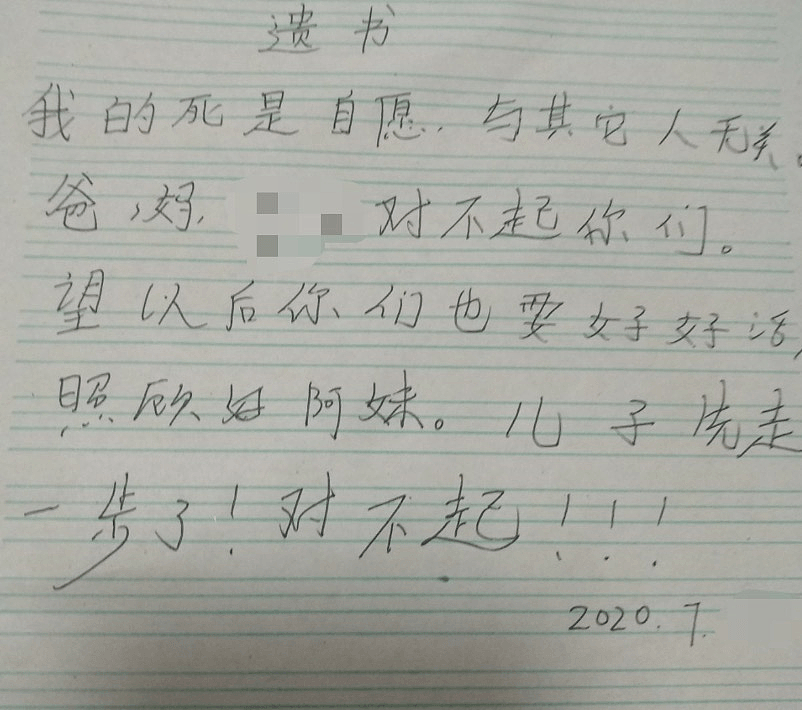 遗书
我的死是自愿.与其它人无关。
爸,妈, 对不起你们。
望以后你们也要好好活,
照顾好阿妹。儿子先走
一步了!对不起!!!
2020.7.